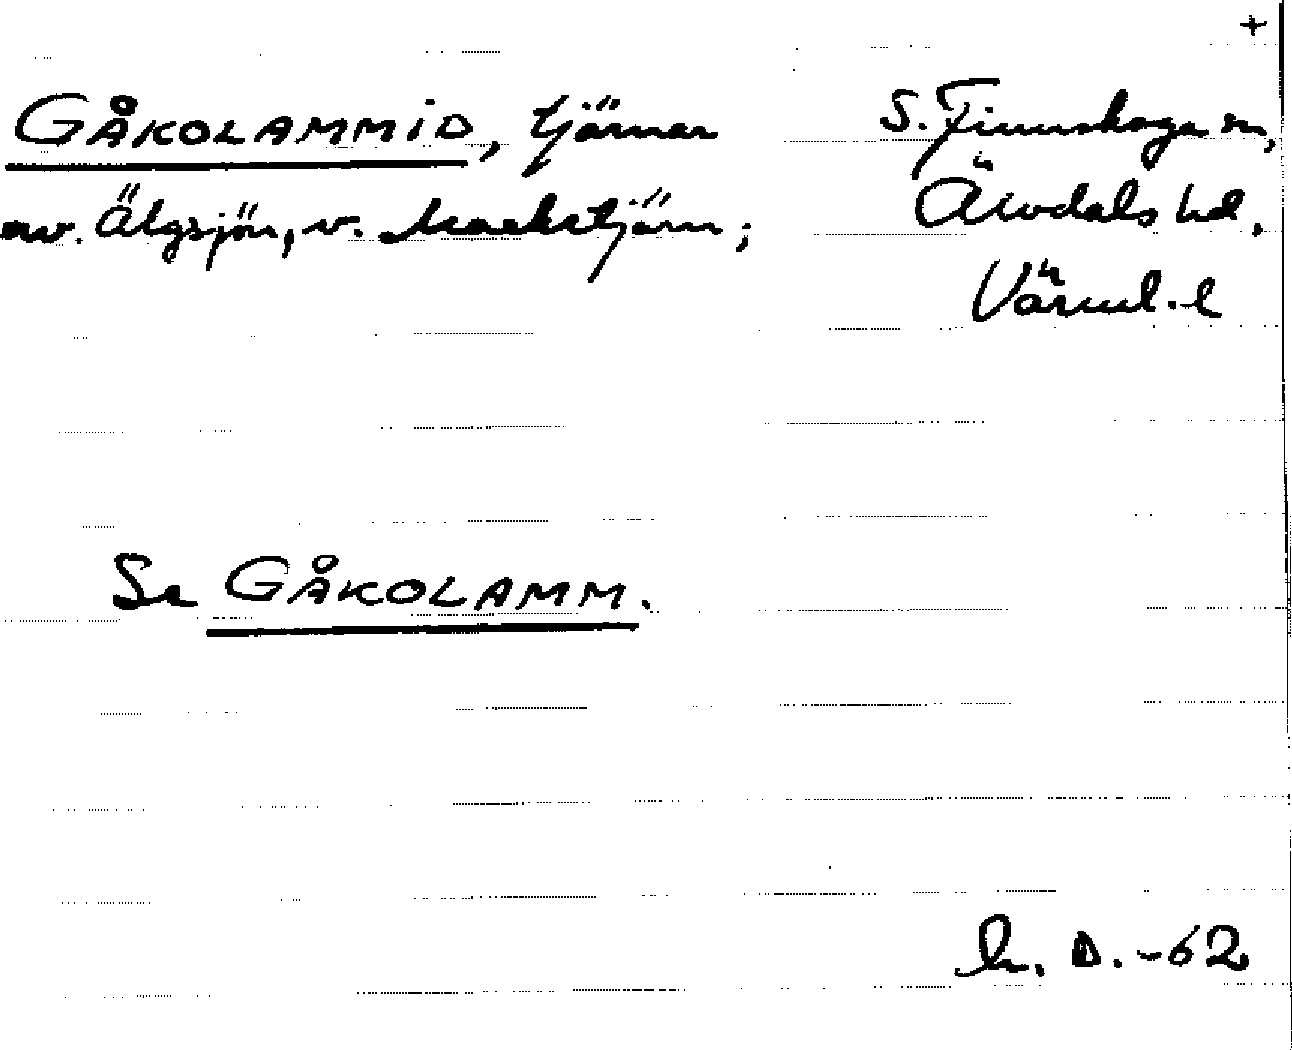 +
GÅKOLAMMID, tjärnar
S. Finnskoga sn,
nv. Älgsjön, v. Mackstjärn;
Älvdals hd,
Värml. l
Se GÅKOLAMM.
L. D. -62